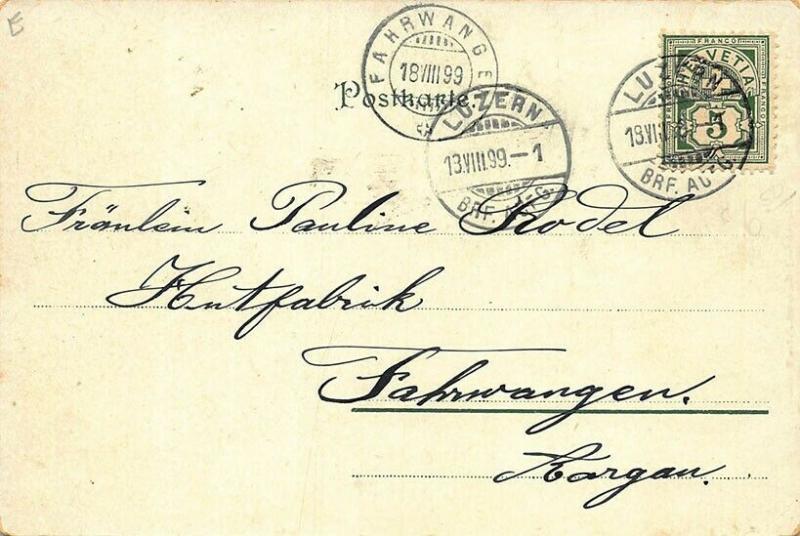 FAHRWANGE
18 VIII 99
Postkarte.
LUZERN
13.VIII.99.-1
BRF.
LUZERN
BRF. AU
FRANCO
HELVETIA
5
Fräulein Pauline Rodel
Hutfabrik
Fahrwangen.
Aargau.